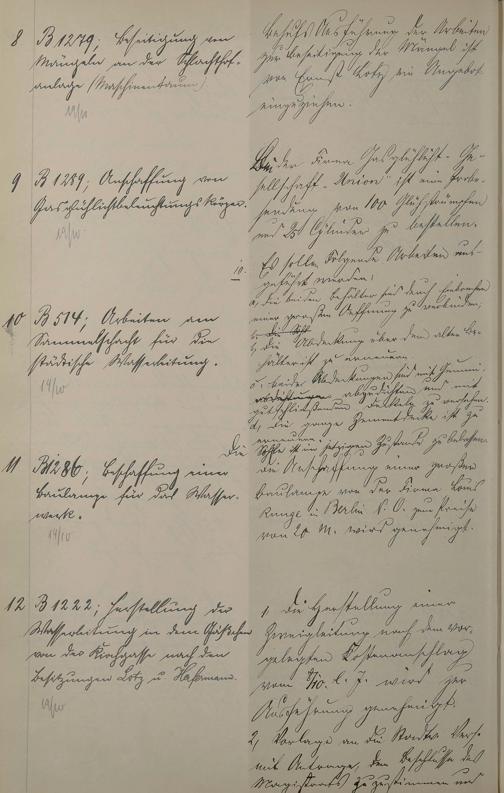 8 B 1279; Beseitigung von
Mängeln an der Schlachthof-
anlage (Maschinenraum)
19/10
Behufs Ausführung der Arbeiten
zur Beseitigung der Mängel ist
von Ernst Lotz ein Angebot
einzuziehen.
9 B 1289; Anschaffung von
Gasglühlichtbeleuchtungskörper.
19/10
Bei der Firma Gasglühlicht-Ge-
sellschaft "Union" ist eine Probe-
sendung von 100 Glühstrümpfen
und 25 Cylinder zu bestellen.
10 B 514; Arbeiten am
Sammelschacht für die
städtische Wasserleitung.
14/10
10.
Es sollen folgende Arbeiten aus-
geführt werden:
a, die beiden Behälter sind durch
einer großen Oeffnung zu verbinden,
b, die Abdeckung über dem alten Be-
hälter ist zu erneuern
c, beide Abdeckungen sind mit Gummi
abzudichten und mit
gutschließenden Deckeln zu versehen.
d, die ganze Zementdecke ist zu
erneuern.
im jetzigen Zustande zu belassen
11 B 1286; Beschaffung einer
Baulampe für das Wasser-
werk.
14/10
Die
die Anschaffung einer großen
Baulampe von der Firma Louis
Runge in Berlin N. O. zum Preise
von 20 M. wird genehmigt.
12 B 1222; Herstellung der
Wasserleitung in dem Gäßchen
von der Kirchgasse nach den
Besitzungen Lotz u. Haßmann.
19/10
1, Die Herstellung einer
Zweigleitung nach dem vor-
gelegten Kostenanschlag
vom 7/10. l. J. wird zur
Ausführung genehmigt.
2, Vorlage an die Stadtv. Vers.
mit Antrage, dem Beschlusse des
Magistrats zuzustimmen und